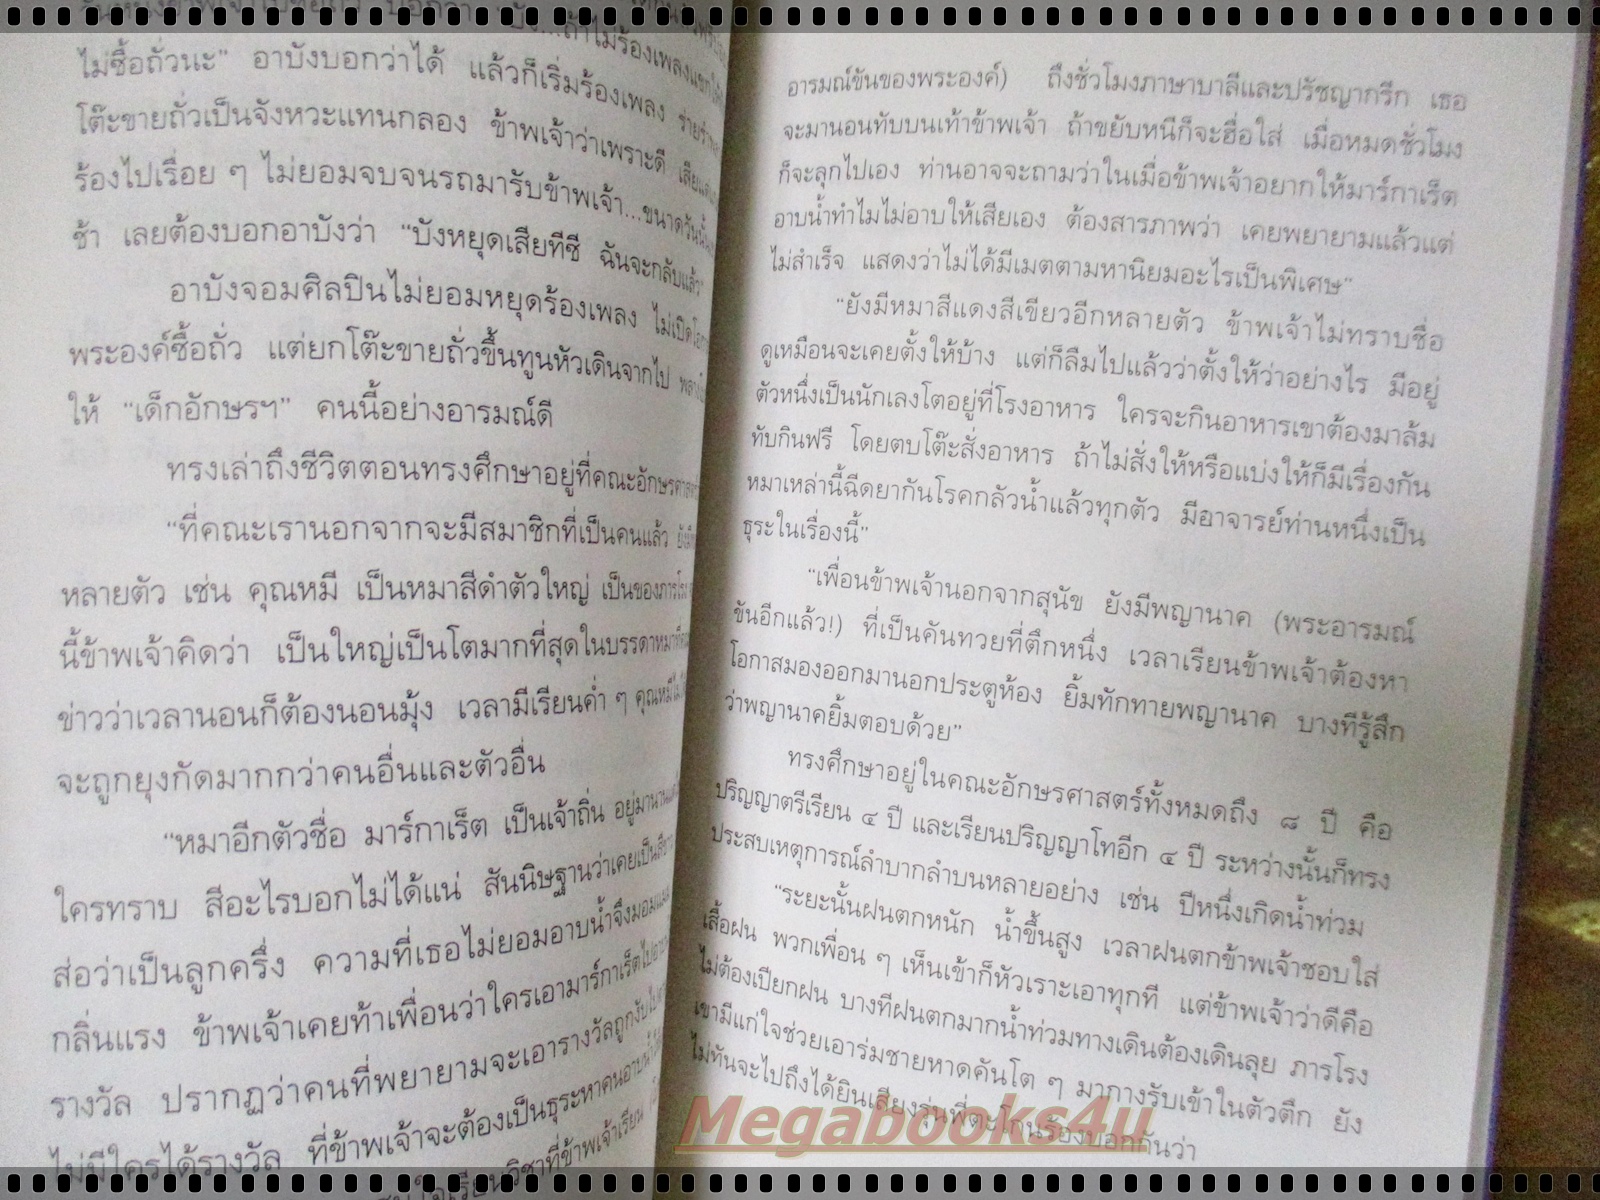 ไม่ซื้อถั่วนะ” อาบังบอกว่าได้ แล้วก็เริ่มร้องเพลง
โต๊ะขายถั่วเป็นจังหวะแทนกลอง ข้าพเจ้าว่าเพราะดี
ร้องไปเรื่อย ๆ ไม่ยอมจบจนรถมารับข้าพเจ้า...ขนาดวันนั้น
ช้า เลยต้องบอกอาบังว่า “บังหยุดเสียทีซี ฉันจะกลับแล้ว”
อาบังจอมศิลปินไม่ยอมหยุดร้องเพลง
พระองค์ซื้อถั่ว แต่ยกโต๊ะขายถั่วขึ้นทูนหัวเดินจากไป
ให้ “เด็กอักษรฯ” คนนี้อย่างอารมณ์ดี
ทรงเล่าถึงชีวิตตอนทรงศึกษาอยู่ที่คณะอักษรศาสตร์
“ที่คณะเรานอกจากจะมีสมาชิกที่เป็นคนแล้ว
หลายตัว เช่น คุณหมี เป็นหมาสีดำตัวใหญ่ เป็นของภารโรง
นี้ข้าพเจ้าคิดว่า เป็นใหญ่เป็นโตมากที่สุดในบรรดาหมา
ข่าวว่าเวลานอนก็ต้องนอนมุ้ง เวลามีเรียนค่ำ ๆ
จะถูกยุงกัดมากกว่าคนอื่นและตัวอื่น
“หมาอีกตัวชื่อ มาร์กาเร็ต เป็นเจ้าถิ่น
ใครทราบ สีอะไรบอกไม่ได้แน่ สันนิษฐานว่าเคยเป็นสีขาว
ส่อว่าเป็นลูกครึ่ง ความที่เธอไม่ยอมอาบน้ำจึงมอมแมม
กลิ่นแรง ข้าพเจ้าเคยท้าเพื่อนว่าใครเอามาร์กาเร็ต
รางวัล ปรากฏว่าคนที่พยายามจะเอารางวัล
ไม่มีใครได้รางวัล ที่ข้าพเจ้าจะต้องเป็นธุระหาคนอาบน้ำ
เรียนวิชาที่ข้าพเจ้าเรียน
อารมณ์ขันของพระองค์) ถึงชั่วโมงภาษาบาลีและปรัชญากรีก เธอ
จะมานอนทับบนเท้าข้าพเจ้า ถ้าขยับหนีก็จะฮื่อใส่ เมื่อหมดชั่วโมง
ก็จะลุกไปเอง ท่านอาจจะถามว่าในเมื่อข้าพเจ้าอยากให้มาร์กาเร็ต
อาบน้ำทำไมไม่อาบให้เสียเอง ต้องสารภาพว่า เคยพยายามแล้วแต่
ไม่สำเร็จ แสดงว่าไม่ได้มีเมตตามหานิยมอะไรเป็นพิเศษ”
“ยังมีหมาสีแดงสีเขียวอีกหลายตัว ข้าพเจ้าไม่ทราบชื่อ
ดูเหมือนจะเคยตั้งให้บ้าง แต่ก็ลืมไปแล้วว่าตั้งให้ว่าอย่างไร มีอยู่
ตัวหนึ่งเป็นนักเลงโตอยู่ที่โรงอาหาร ใครจะกินอาหารเขาต้องมาล้ม
ทับกินฟรี โดยตบโต๊ะสั่งอาหาร ถ้าไม่สั่งให้หรือแบ่งให้ก็มีเรื่องกัน
หมาเหล่านี้ฉีดยากันโรคกลัวน้ำแล้วทุกตัว มีอาจารย์ท่านหนึ่งเป็น
ธุระในเรื่องนี้”
“เพื่อนข้าพเจ้านอกจากสุนัข ยังมีพญานาค (พระอารมณ์
ขันอีกแล้ว!) ที่เป็นคันทวยที่ตึกหนึ่ง เวลาเรียนข้าพเจ้าต้องหา
โอกาสมองออกมานอกประตูห้อง ยิ้มทักทายพญานาค บางทีรู้สึก
ว่าพญานาคยิ้มตอบด้วย”
ทรงศึกษาอยู่ในคณะอักษรศาสตร์ทั้งหมดถึง ๘ ปี คือ
ปริญญาตรีเรียน ๔ ปี และเรียนปริญญาโทอีก ๔ ปี ระหว่างนั้นก็ทรง
ประสบเหตุการณ์ลำบากลำบนหลายอย่าง เช่น ปีหนึ่งเกิดน้ำท่วม
“ระยะนั้นฝนตกหนัก น้ำขึ้นสูง เวลาฝนตกข้าพเจ้าชอบใส่
เสื้อฝน พวกเพื่อน ๆ เห็นเข้าก็หัวเราะเอาทุกที แต่ข้าพเจ้าว่าดีคือ
ไม่ต้องเปียกฝน บางทีฝนตกมากน้ำท่วมทางเดินต้องเดินลุย ภารโรง
เขามีแก่ใจช่วยเอาร่มชายหาดคันโต ๆ มากางรับเข้าในตัวตึก ยัง
ไม่ทันจะไปถึงได้ยินเสียงรุ่นพี่ตะโกนร้องบอกกันว่า
Megabooks4u